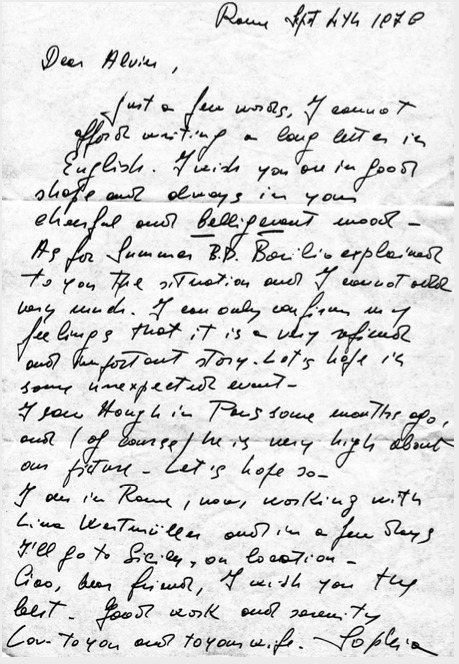 Rome Sept 4th 1978
Dear Alvin,
Just a few words, I cannot
afford writing a long letter in
English. I wish you are in good
shape and always in your
cheerful and belligerant mood -
As for Summer B.D. Basilio explained
to you the situation and I cannot add
very much. I can only confirm my
feelings that it is a very refined
and important story. Let's hope in
some unexpected event -
I saw Hough in Paris some months ago,
and (of course) he is very high about
our picture - Let's hope so -
I am in Rome, now, working with
Lina Wertmüller and in a few days
I'll go to Sicily, on location -
Ciao, dear friend, I wish you the
best. Good work and serenity
Love to you and to your wife. Sophia